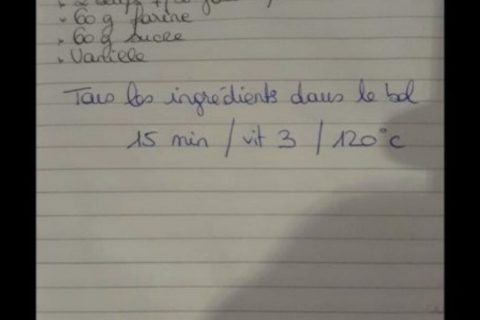 60 g farine
60 g sucre
Vanille
Tous les ingrédients dans le bol
15 min / vit 3 / 120°c